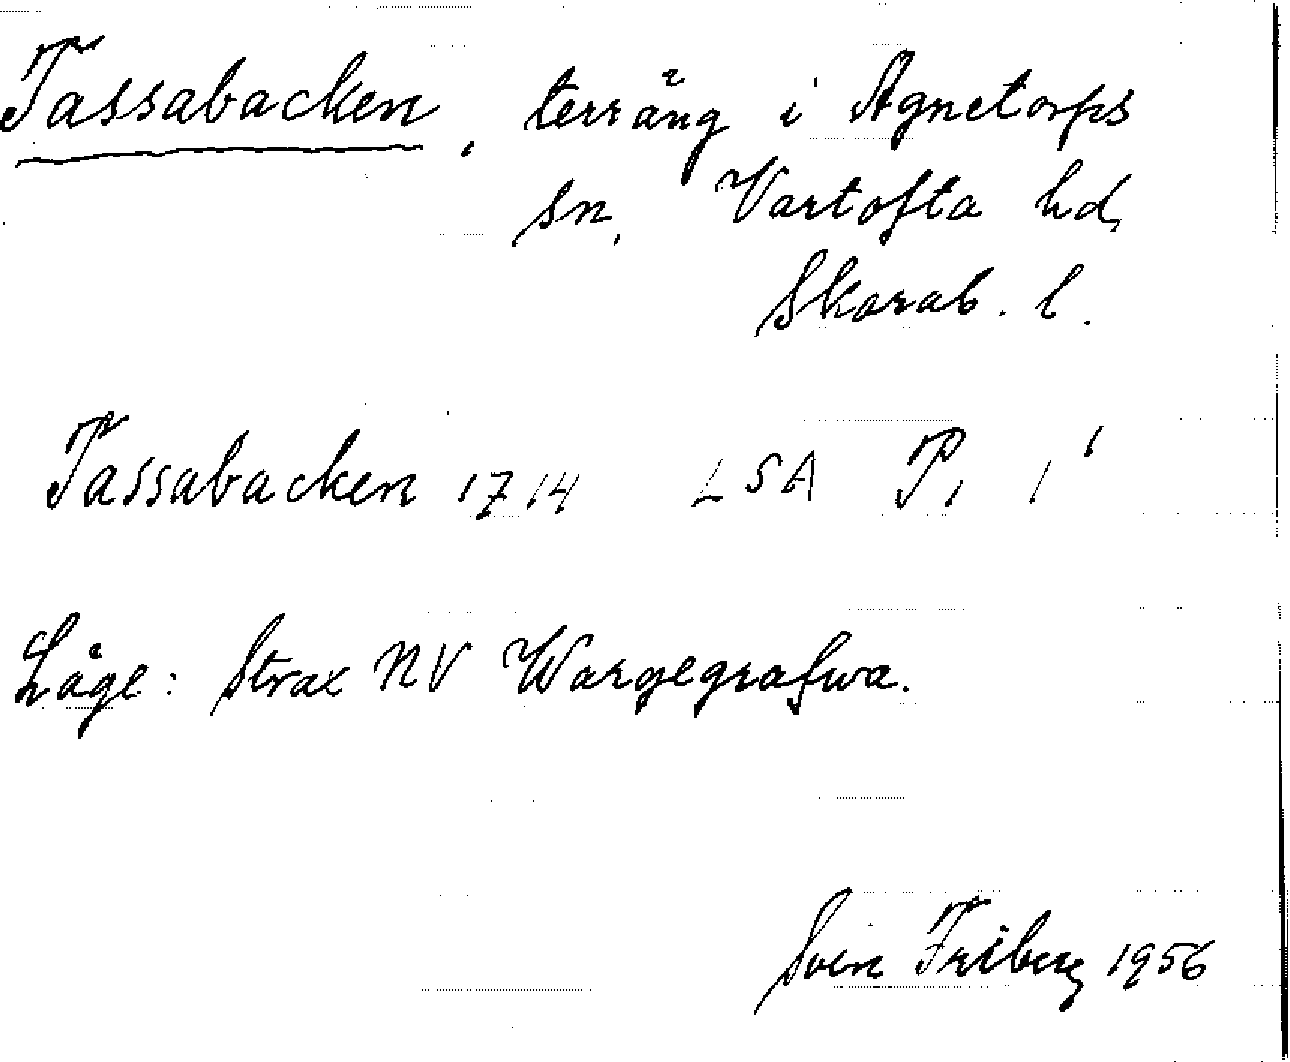 Tassabacken, terräng i Agnetorps
sn, Vartofta hd,
Skarab. l.
Tassabacken 1714 LSA P, 1¹
Läge: Strax NV Wargegrafwa.
Sven Friberg 1956